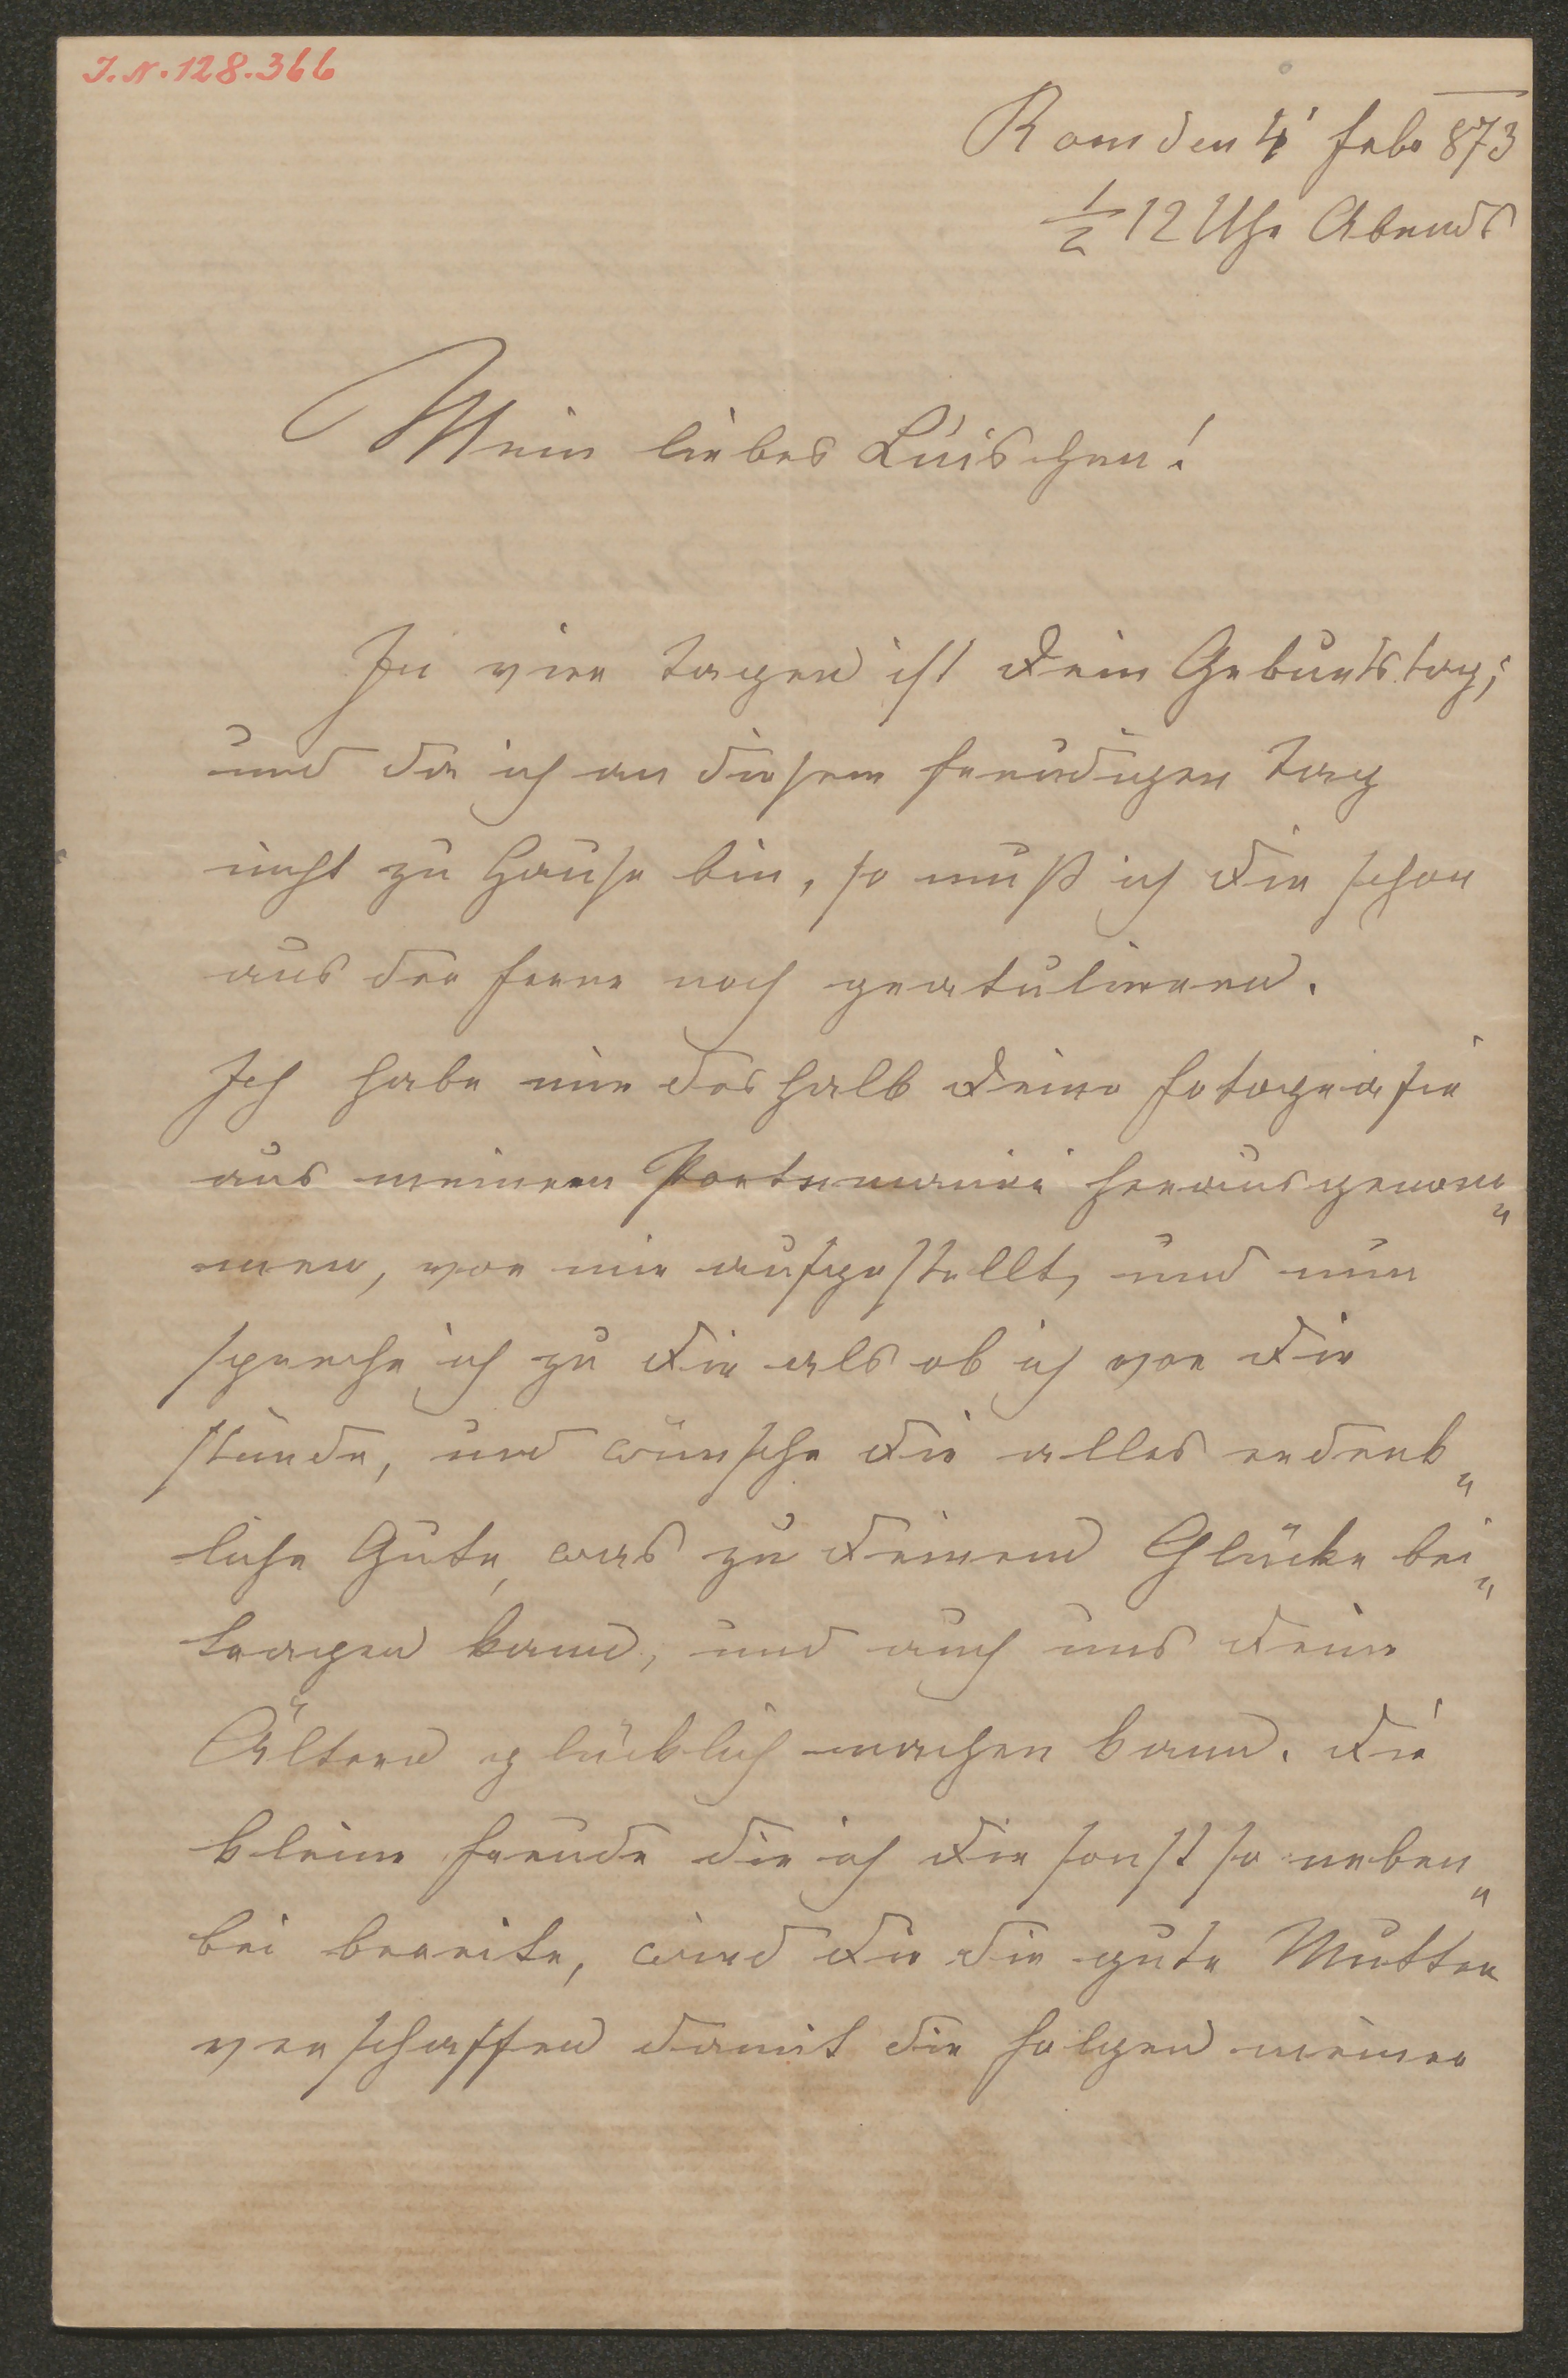 I.N.128.366
Rom den 4' Feb. 873
1/2 12 Uhr Abends
Mein liebes Luischen!
In vier Tagen ist Dein Geburtstag;
und da ich an diesem freudigen Tag
nicht zu Hause bin, so muß ich Dir schon
aus der Ferne noch gratuliren.
Ich habe mir deshalb Deine Fotografie
aus meinem Portemonai herausgenom„
men, vor mir aufgestellt, und nun
spreche ich zu Dir als ob ich vor Dir
stünde, und wünsche Dir alles erdenk„
liche Gute, was zu Deinem Glücke bei„
tragen kann, und auch uns Deine
Ältern glücklich machen kann. Die
kleine Freude die ich Dir sonst so neben„
bei bereite, wird Dir die gute Mutter
verschaffen damit die Folgen meiner